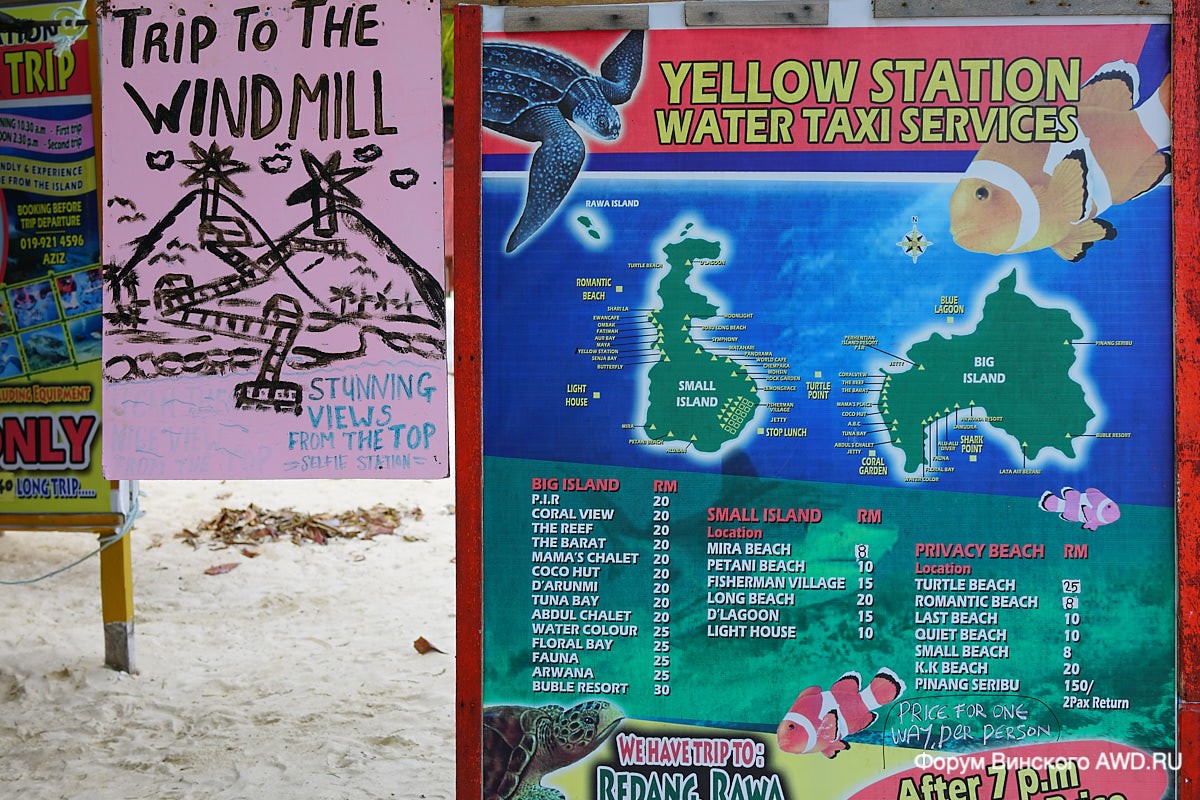 TRIP
NING 10.30 a.m - First trip
OON 2.30 p.m - Second trip
NDLY & EXPERIENCE
E FROM THE ISLAND
BOOKING BEFORE
TRIP DEPARTURE
019-921 4596
AZIZ
LUDING EQUIPMENT
ONLY
LONG TRIP.....
TRIP TO THE
WINDMILL
STUNNING
VIEWS
FROM THE TOP
=SELFIE STATION=
YELLOW STATION
WATER TAXI SERVICES
RAWA ISLAND
N
TURTLE BEACH
D'LAGOON
ROMANTIC
BEACH
SHARI LA
EWANCAFE
OMBAK
FATIMAH
AUR BAY
MAYA
YELLOW STATION
SENJA BAY
BUTTERFLY
MOONLIGHT
LONG BEACH
SYMPHONY
MATAHARI
PANORAMA
WORLD CAFE
CHEMPAKA
MOHSIN
ROCK GARDEN
LEMONGRASS
FISHERMAN
VILLAGE
JETTY
STOP LUNCH
LIGHT
HOUSE
SMALL
ISLAND
MIRA
PETANI BEACH
TURTLE
POINT
BLUE
LAGOON
PERHENTIAN
ISLAND RESORT
P.I.R
JETTY
CORALVIEW
THE REEF
THE BARAT
MAMA'S PLACE
COCO HUT
A.B.C
TUNA BAY
ABDUL'S CHALET
JETTY
CORAL
GARDEN
BIG
ISLAND
PINANG SERIBU
ARWANA RESORT
SAMUDRA
ALU-ALU
DIVER
FAUNA
FLORAL BAY
WATER COLOR
SHARK
POINT
LATA AIR BERANI
BUBLE RESORT
BIG ISLAND RM
P.I.R 20
CORAL VIEW 20
THE REEF 20
THE BARAT 20
MAMA'S CHALET 20
COCO HUT 20
D'ARUNMI 20
TUNA BAY 20
ABDUL CHALET 20
WATER COLOUR 25
FLORAL BAY 25
FAUNA 25
ARWANA 25
BUBLE RESORT 30
SMALL ISLAND RM
Location
MIRA BEACH 8
PETANI BEACH 10
FISHERMAN VILLAGE 15
LONG BEACH 20
D'LAGOON 15
LIGHT HOUSE 10
PRIVACY BEACH RM
Location
TURTLE BEACH 25
ROMANTIC BEACH 8
LAST BEACH 10
QUIET BEACH 10
SMALL BEACH 8
K.K BEACH 20
PINANG SERIBU 150/
2Pax Return
PRICE FOR ONE
WAY, PER PERSON
WE HAVE TRIP TO:
REDANG, RAWA
After 7 p.m
Форум Винского AWD.RU